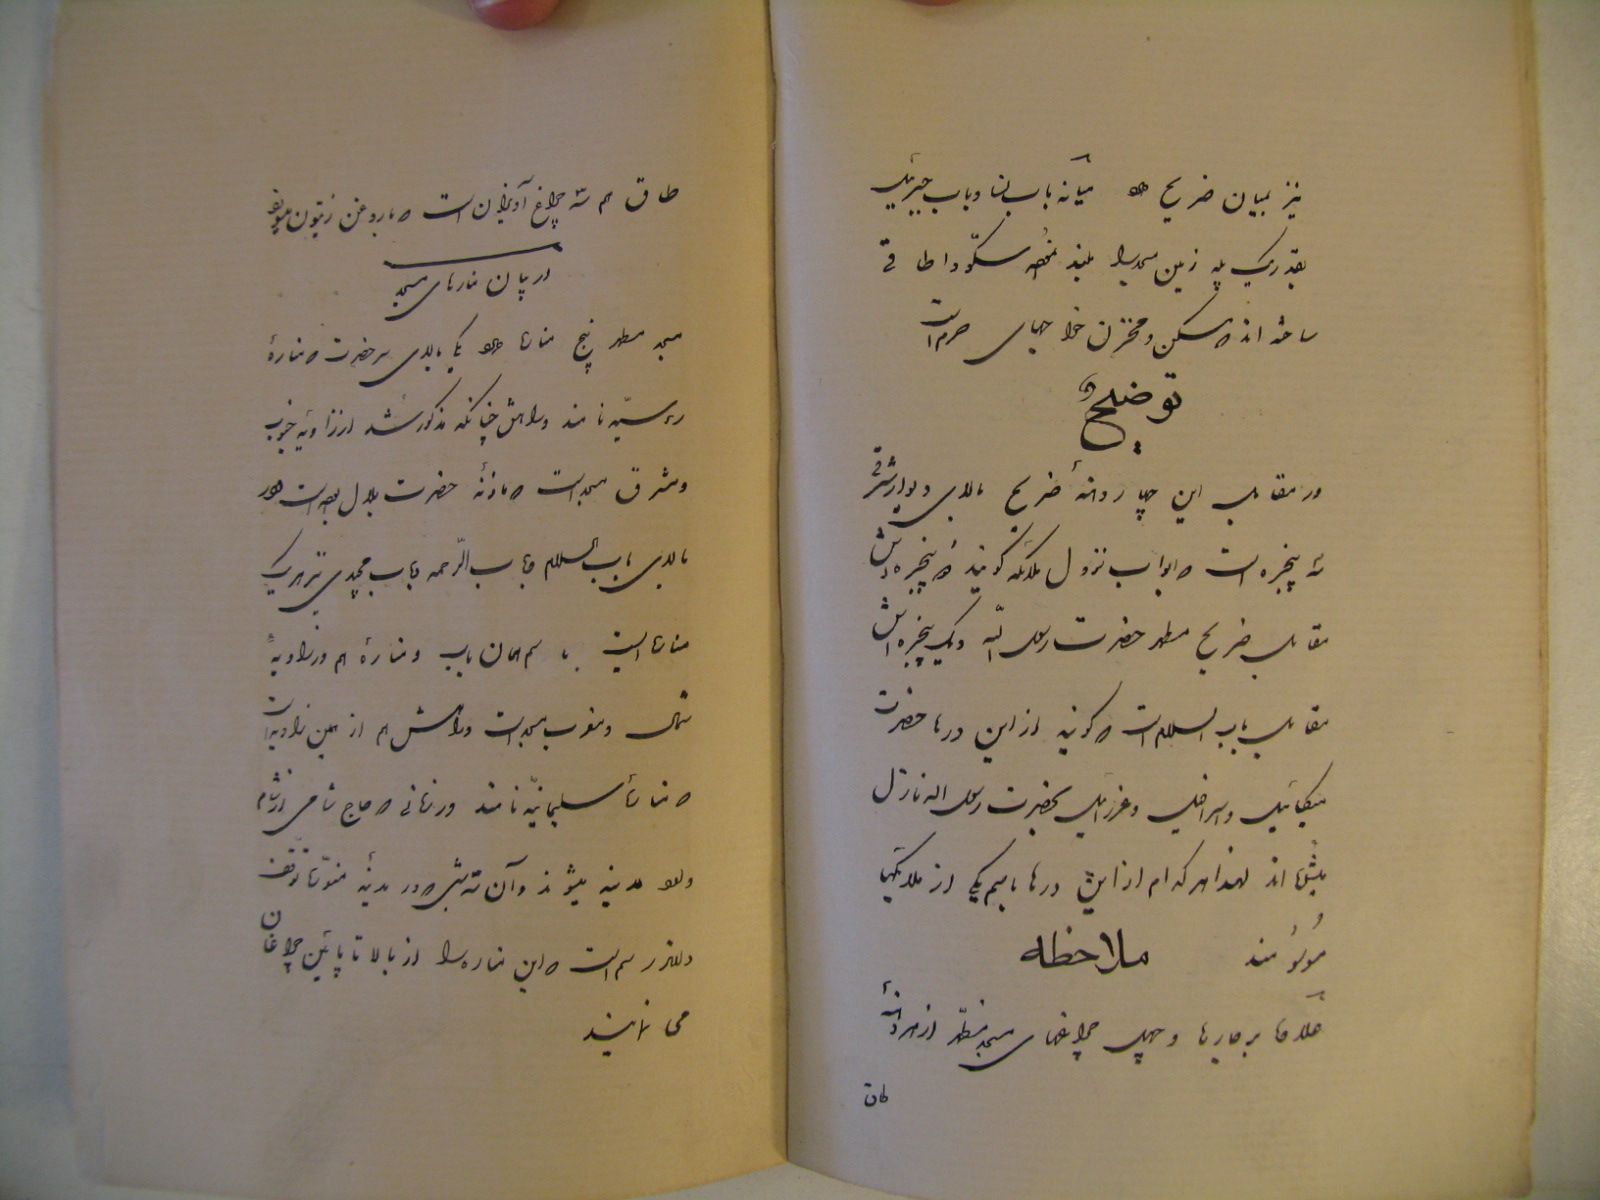 نیز بمیان ضریح میانه باب نسا و باب جبرئیل
بقدر یک پله زمین مسجد را بلند نموده سکّو و اطاقی
ساخته اند که مسکن و مخزن خواجهای حرم است
توضیح
در مقابل این چهار دهنهٔ ضریح بالای دیوار شرقی
سه پنجره است که ابواب نزول ملائکه گویند که پنجره اش
مقابل ضریح مطهر حضرت رسول الله و یک پنجره اش
مقابل باب السلام است که گویند از این درها حضرت
میکائیل و اسرافیل و عزرائیل بحضرت رسول اله نازل
میشده اند لهذا هر کدام از این درها باسم یکی از ملائکه
موسومند ملاحظه
علاوه بر جارها و چهل چراغهای مسجد مطهّر از هر دهنهٔ
طاق
طاق هم سه چراغ آویزان است که با روغن زیتون میسوزد
در بیان منارهای مسجد
مسجد مطهر پنج مناره یکی بالای سر حضرت که منارهٔ
رئسیّه نامند و راهش چنانکه مذکور شد از زاویه جنوب
و مشرق مسجد است که ماذنهٔ حضرت بلال بوده است
بالای باب السلام و باب الرّحمه و باب مجیدی نیز هر یک
مناره ایست باسم همان باب و منارهٔ هم در زاویهٔ
شمال و مغرب مسجد است و راهش هم از همین زاویه است
که منارهٔ سلیمانیّه نامند در زمانی که حاج شامی از شام
وارد مدینه میشوند و آن سه شبی که در مدینهٔ منوّره توقف
دارند رسم است که این مناره را از بالا تا پائین چراغان
می نمایند